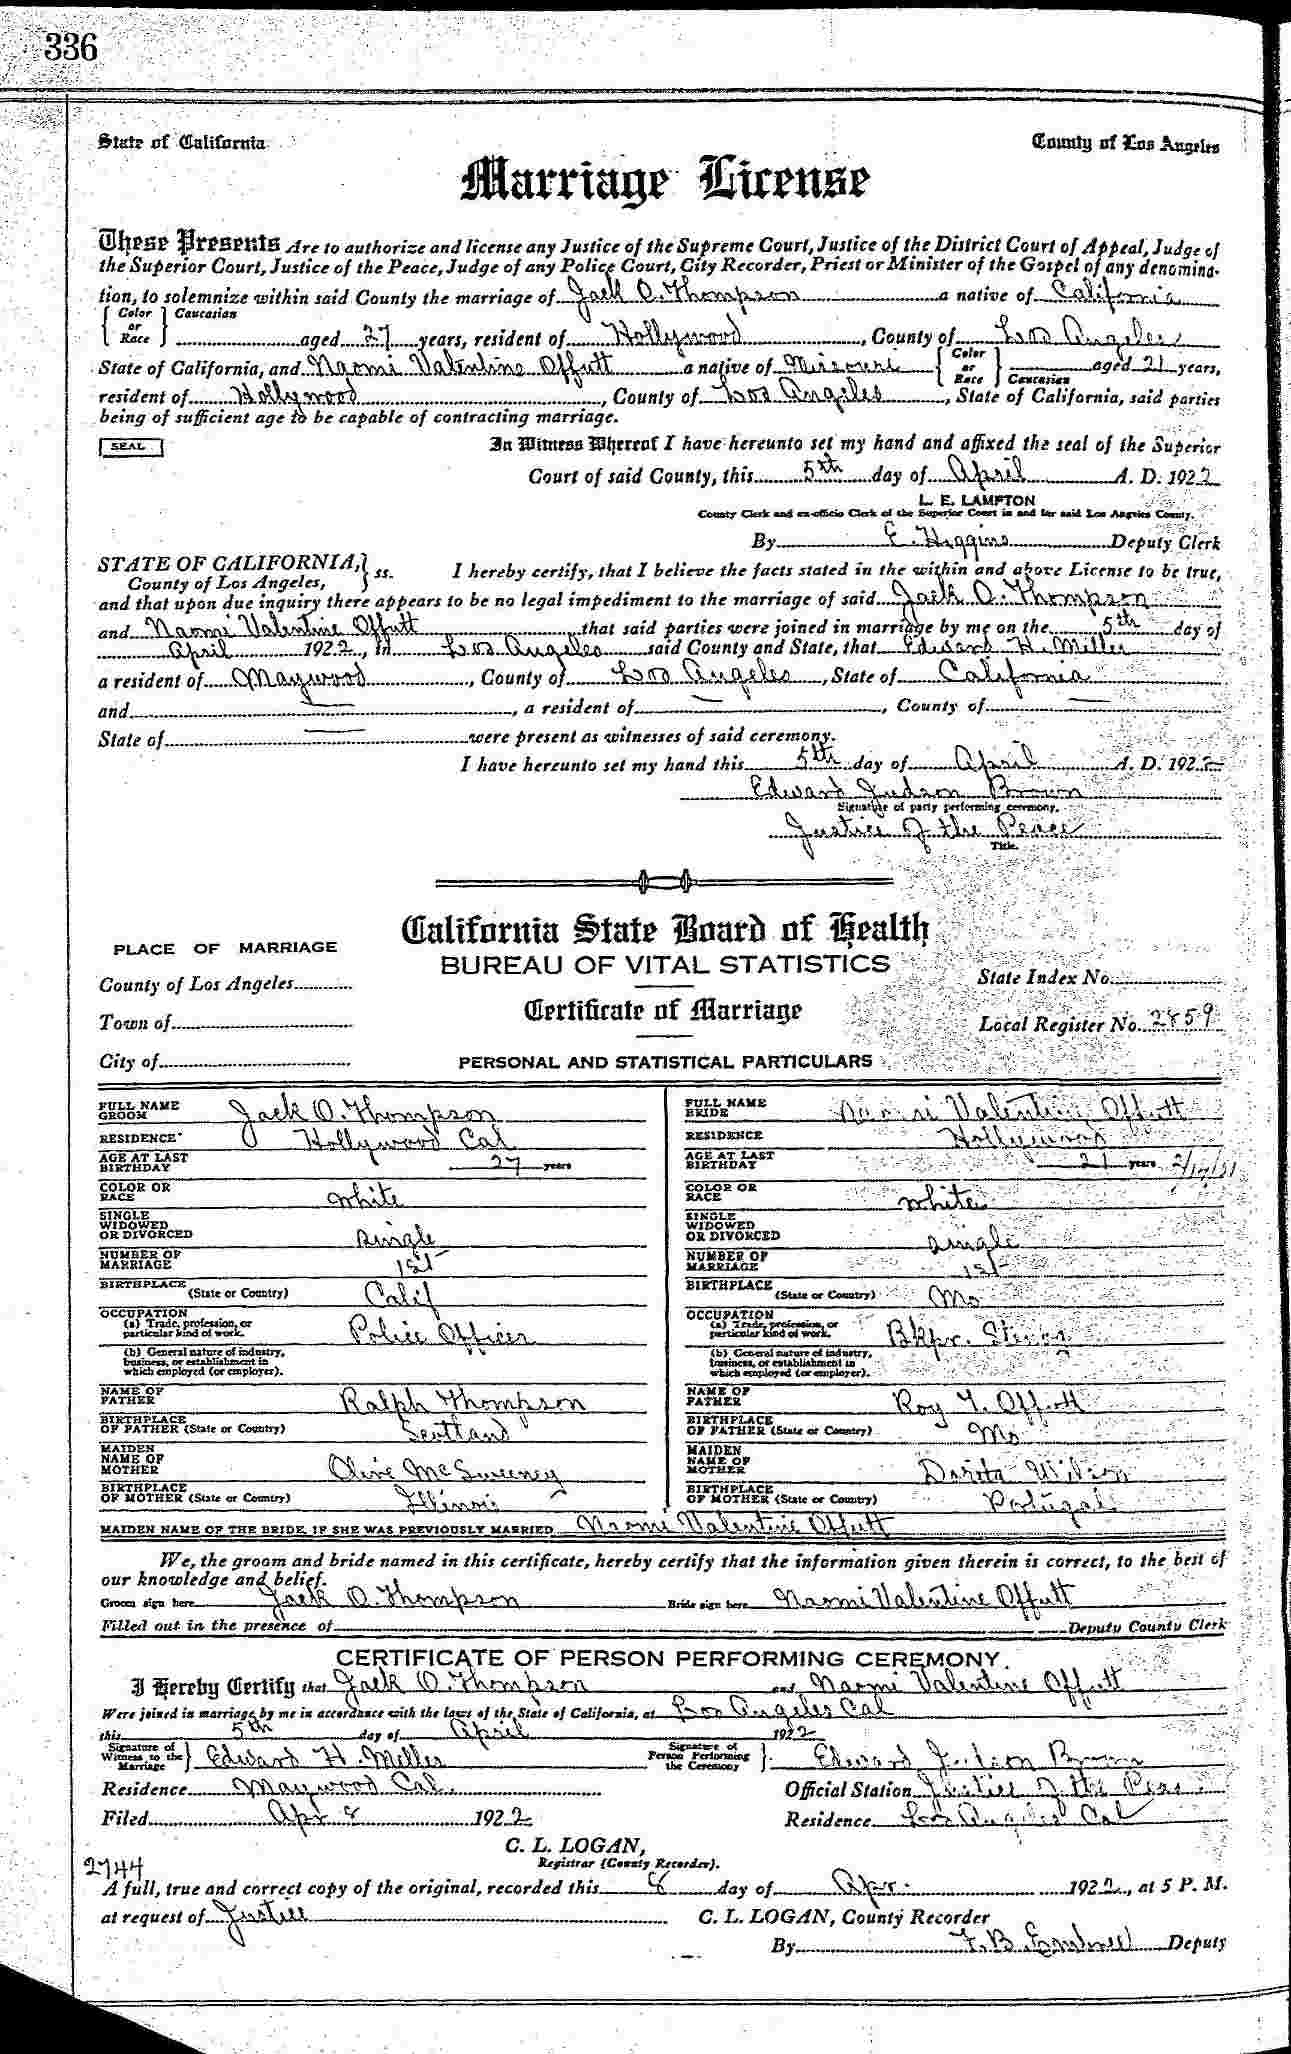 336
State of California
County of Los Angeles
Marriage License
These Presents Are to authorize and license any Justice of the Supreme Court, Justice of the District Court of Appeal, Judge of
the Superior Court, Justice of the Peace, Judge of any Police Court, City Recorder, Priest or Minister of the Gospel of any denomina-
tion, to solemnize within said County the marriage of Jack O. Thompson a native of California
{ Color or Race } Caucasian aged 27 years, resident of Hollywood, County of Los Angeles
State of California, and Naomi Valentine Offutt a native of Missouri { Color or Race } Caucasian aged 21 years,
resident of Hollywood, County of Los Angeles, State of California, said parties
being of sufficient age to be capable of contracting marriage.
SEAL
In Witness Whereof I have hereunto set my hand and affixed the seal of the Superior
Court of said County, this 5th day of April A. D. 1922
L. E. LAMPTON
County Clerk and ex-officio Clerk of the Superior Court in and for said Los Angeles County.
By E. Higgins Deputy Clerk
STATE OF CALIFORNIA, } ss.
County of Los Angeles,
I hereby certify, that I believe the facts stated in the within and above License to be true,
and that upon due inquiry there appears to be no legal impediment to the marriage of said Jack O. Thompson
and Naomi Valentine Offutt that said parties were joined in marriage by me on the 5th day of
April 1922, in Los Angeles said County and State, that Edward H. Miller
a resident of Maywood, County of Los Angeles, State of California
and —, a resident of —, County of —
State of — were present as witnesses of said ceremony.
I have hereunto set my hand this 5th day of April A. D. 1922
Edward Judson Brown
Signature of party performing ceremony.
Justice of the Peace
Title.
California State Board of Health
PLACE OF MARRIAGE
BUREAU OF VITAL STATISTICS
County of Los Angeles
State Index No.
Certificate of Marriage
Town of
Local Register No. 2859
City of
PERSONAL AND STATISTICAL PARTICULARS
FULL NAME GROOM Jack O. Thompson
RESIDENCE Hollywood Cal
AGE AT LAST BIRTHDAY 27 years
COLOR OR RACE white
SINGLE WIDOWED OR DIVORCED single
NUMBER OF MARRIAGE 1st
BIRTHPLACE (State or Country) Calif
OCCUPATION
(a) Trade, profession, or particular kind of work. Police Officer
(b) General nature of industry, business, or establishment in which employed (or employer).
NAME OF FATHER Ralph Thompson
BIRTHPLACE OF FATHER (State or Country) Scotland
MAIDEN NAME OF MOTHER Olive McSweeney
BIRTHPLACE OF MOTHER (State or Country) Illinois
FULL NAME BRIDE Naomi Valentine Offutt
RESIDENCE Hollywood
AGE AT LAST BIRTHDAY 21 years
COLOR OR RACE white
SINGLE WIDOWED OR DIVORCED single
NUMBER OF MARRIAGE 1st
BIRTHPLACE (State or Country) Mo
OCCUPATION
(a) Trade, profession, or particular kind of work. Bkpr. Stenog
(b) General nature of industry, business, or establishment in which employed (or employer).
NAME OF FATHER Roy T. Offutt
BIRTHPLACE OF FATHER (State or Country) Mo
MAIDEN NAME OF MOTHER Wilson
BIRTHPLACE OF MOTHER (State or Country) Portugal
MAIDEN NAME OF THE BRIDE, IF SHE WAS PREVIOUSLY MARRIED Naomi Valentine Offutt
We, the groom and bride named in this certificate, hereby certify that the information given therein is correct, to the best of
our knowledge and belief.
Groom sign here Jack O. Thompson Bride sign here Naomi Valentine Offutt
Filled out in the presence of Deputy County Clerk
CERTIFICATE OF PERSON PERFORMING CEREMONY.
I Hereby Certify that Jack O. Thompson and Naomi Valentine Offutt
Were joined in marriage by me in accordance with the laws of the State of California, at Los Angeles Cal
this 5th day of April 1922
Signature of Witness to the Marriage } Edward H. Miller Signature of Person Performing the Ceremony }. Edward Judson Brown
Residence Maywood Cal. Official Station Justice of the Peace
Filed Apr 8 1922 Residence Los Angeles Cal
C. L. LOGAN,
Registrar (County Recorder).
2744
A full, true and correct copy of the original, recorded this 8 day of Apr. 1922, at 5 P. M.
at request of Justice C. L. LOGAN, County Recorder
By F. B. Deputy